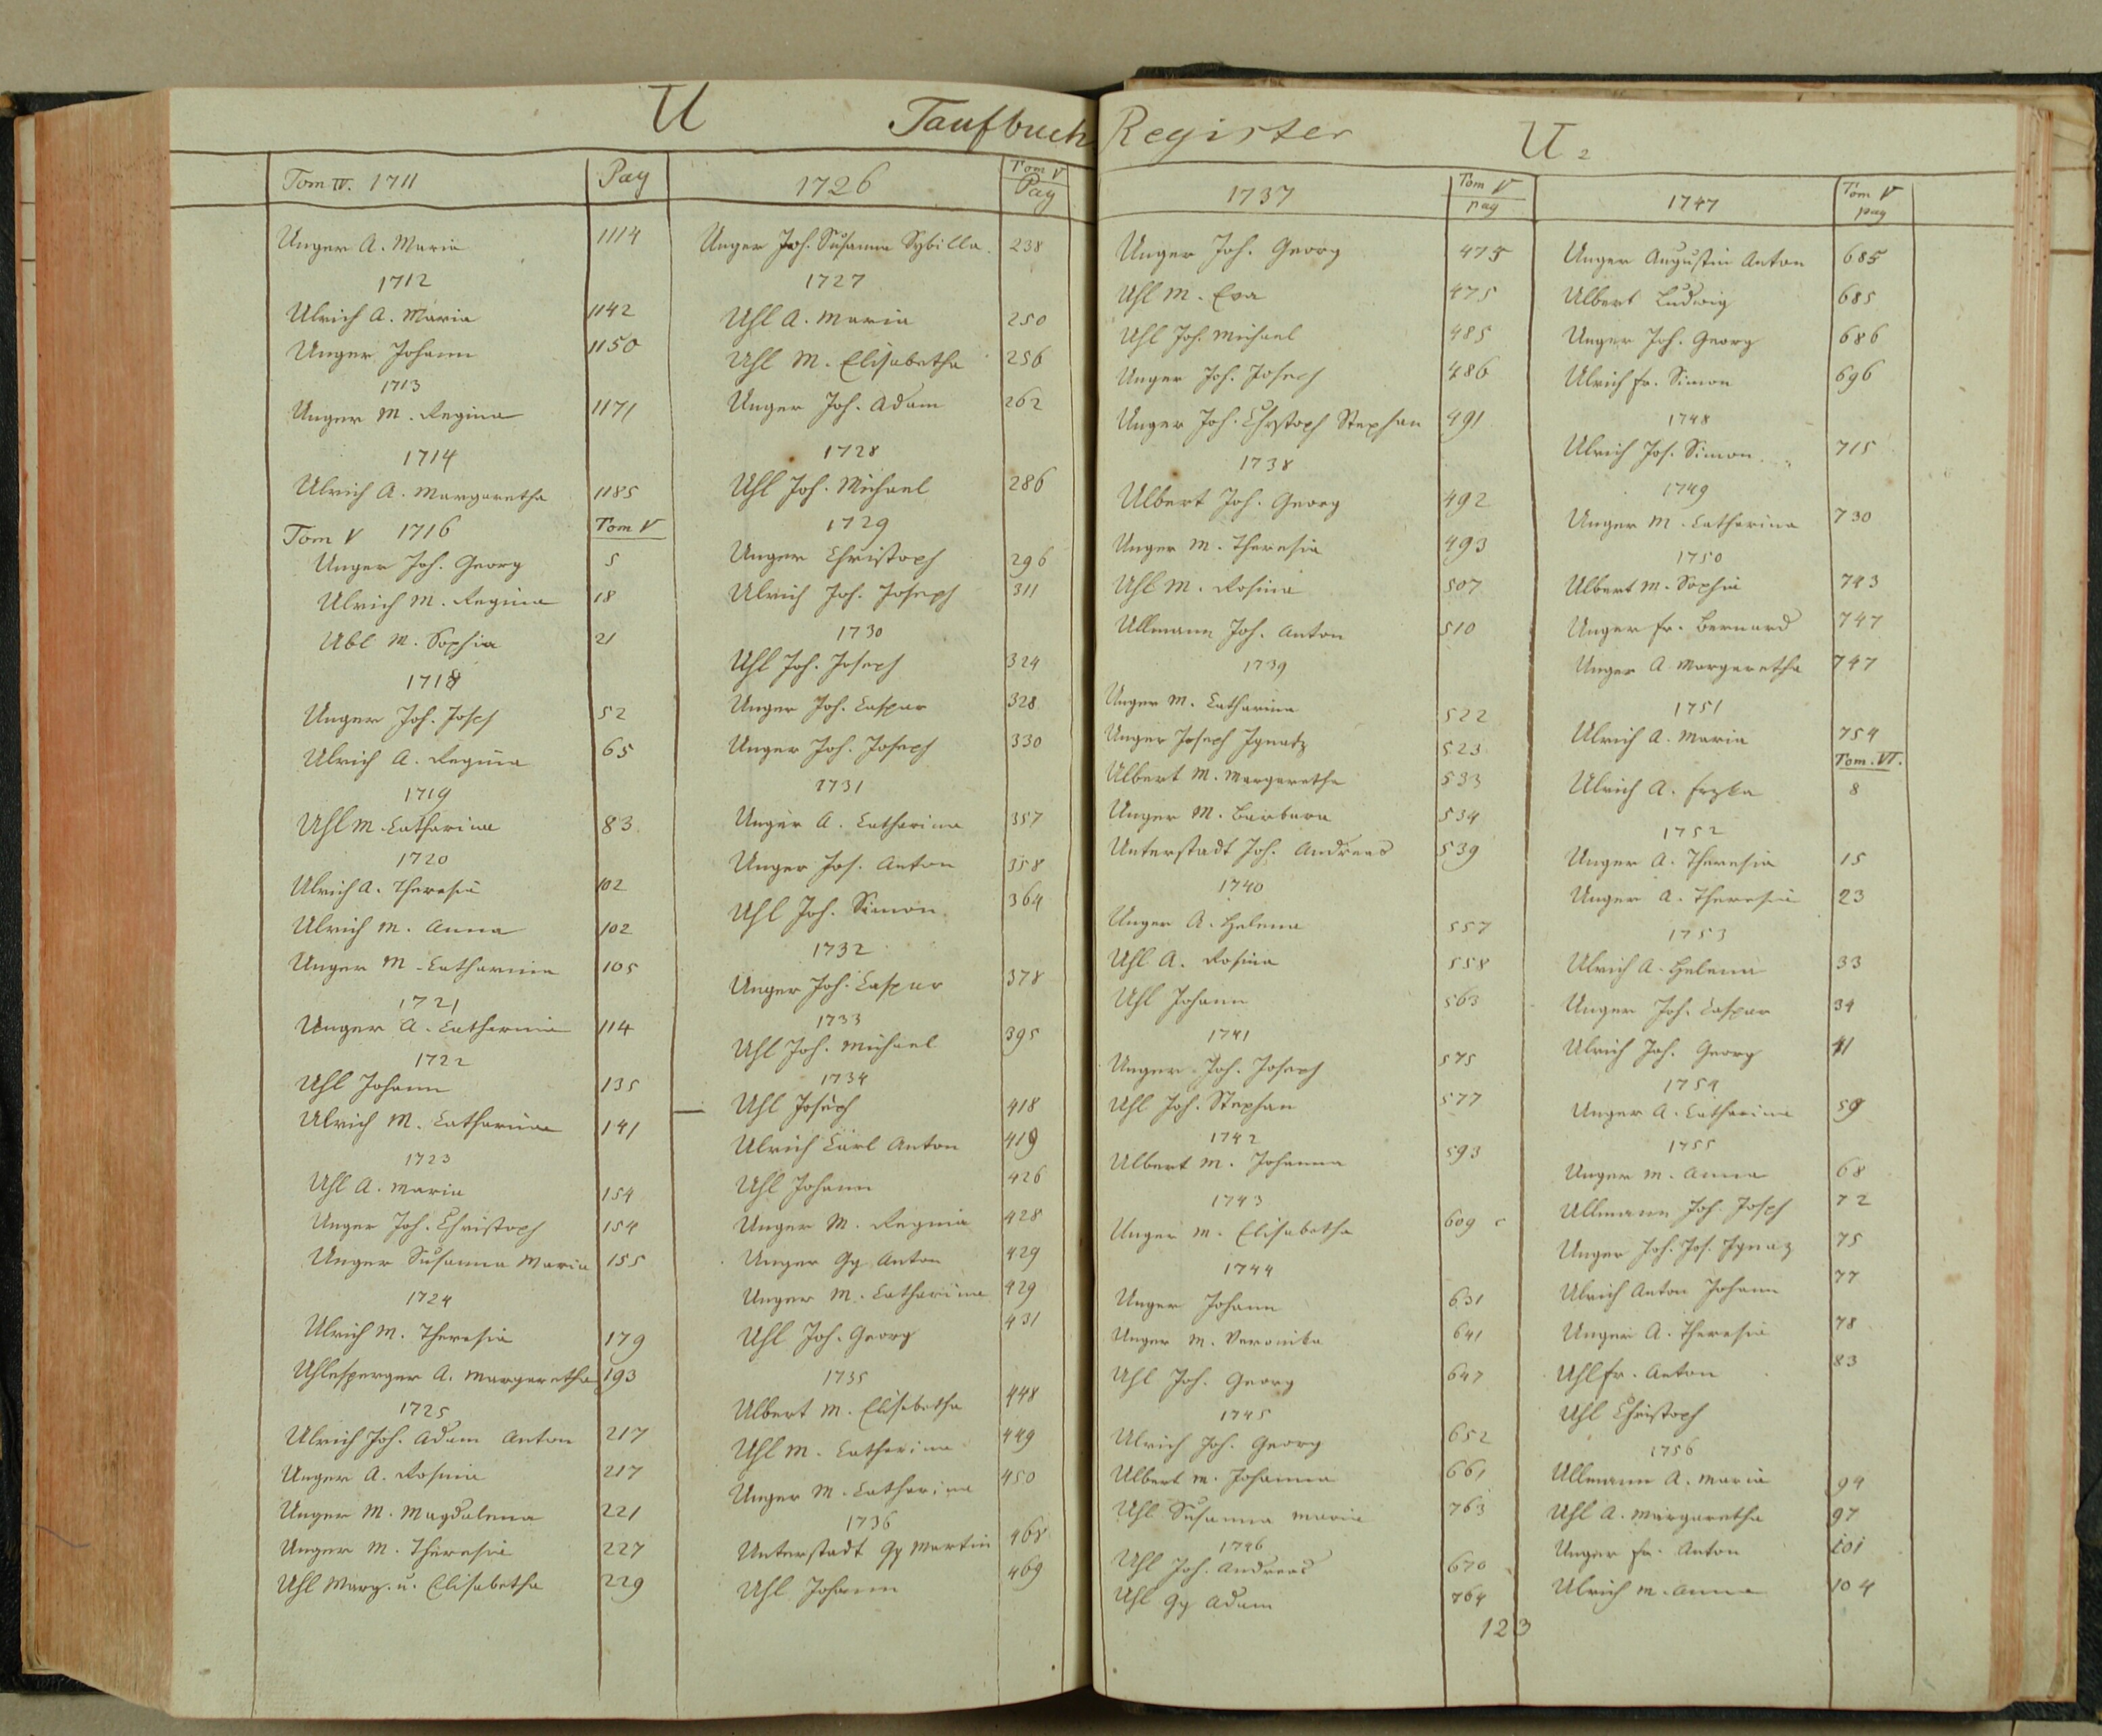 U Taufbuch Register U 2
Tom IV. 1711 Pag
Unger A. Maria 1114
1712
Ulrich A. Maria 1142
Unger Johann 1150
1713
Unger M. Regina 1171
1714
Ulrich A. Margaretha 1185
Tom V 1716 Tom V
Unger Joh. Georg 5
Ulrich M. Regina 18
Ubl M. Sophia 21
1718
Unger Joh. Joseph 52
Ulrich A. Regina 65
1719
Uhl M. Catharina 83
1720
Ulrich A. Theresia 102
Ulrich M. Anna 102
Unger M. Catharina 105
1721
Unger A. Catharina 114
1722
Uhl Johann 135
Ulrich M. Catharina 141
1723
Uhl A. Maria 154
Unger Joh. Christoph 154
Unger Susanna Maria 155
1724
Ulrich M. Theresia 179
Uhlesperger A. Margaretha 193
1725
Ulrich Joh. Adam Anton 217
Unger A. Rosina 217
Unger M. Magdalena 221
Unger M. Theresia 227
Uhl Marg. u. Elisabetha 229
1726 Tom V Pag
Unger Joh. Susanna Sybilla. 238
1727
Uhl A. Maria 250
Uhl M. Elisabetha 256
Unger Joh. Adam 262
1728
Uhl Joh. Michael 286
1729
Unger Christoph 296
Ulrich Joh. Joseph 311
1730
Uhl Joh. Joseph 324
Unger Joh. Caspar 328
Unger Joh. Joseph 330
1731
Unger A. Catharina 357
Unger Joh. Anton 358
Uhl Joh. Simon 364
1732
Unger Joh. Caspar 378
1733
Uhl Joh. Michael 395
1734
Uhl Joseph 418
Ulrich Carl Anton 419
Uhl Johann 426
Unger M. Regina 428
Unger Gg Anton 429
Unger M. Catharina 429
Uhl Joh. Georg 431
1735
Ulbert M. Elisabetha 448
Uhl M. Catharina 449
Unger M. Catharina 450
1736
Unterstadt Gg Martin 468
Uhl Johann 469
1737 Tom V pag
Unger Joh. Georg 475
Uhl M. Eva 475
Uhl Joh. Michael 485
Unger Joh. Joseph 486
Unger Joh. Christoph Stephan 491
1738
Ulbert Joh. Georg 492
Unger M. Theresia 493
Uhl M. Rosina 507
Ullmann Joh. Anton 510
1739
Unger M. Catharina 522
Unger Joseph Ignatz 523
Ulbert M. Margaretha 533
Unger M. Barbara 534
Unterstadt Joh. Andreas 539
1740
Unger A. Helena 557
Uhl A. Rosina 558
Uhl Johann 563
1741
Unger Joh. Joseph 575
Uhl Joh. Stephan 577
1742
Ulbert M. Johanna 593
1743
Unger M. Elisabetha 609
1744
Unger Johann 631
Unger M. Veronika 641
Uhl Joh. Georg 647
1745
Ulrich Joh. Georg 652
Ulbert M. Johanna 661
Uhl Susanna Maria 763
1746
Uhl Joh. Andreas 670
Uhl Gg Adam 764
123
1747 Tom V pag
Unger Augustin Anton 685
Ulbert Ludwig 685
Unger Joh. Georg 686
Ulrich Fr. Simon 696
1748
Ulrich Jos. Simon 715
1749
Unger M. Catharina 730
1750
Ulbert M. Sophia 743
Unger Fr. Bernard 747
Unger A. Margaretha 747
1751
Ulrich A. Maria 754
Tom. VI.
Ulrich A. 8
1752
Unger A. Theresia 15
Unger A. Theresia 23
1753
Ulrich A. Helena 33
Unger Joh. Caspar 34
Ulrich Joh. Georg 41
1754
Unger A. Catharina 59
1755
Unger M. Anna 68
Ullmann Joh. Joseph 72
Unger Joh. Jos. Ignaz 75
Ulrich Anton Johann 77
Unger A. Theresia 78
Uhl Fr. Anton 83
Uhl Christoph
1756
Ullmann A. Maria 94
Uhl A. Margaretha 97
Unger Fr. Anton 101
Ulrich M. Anna 104